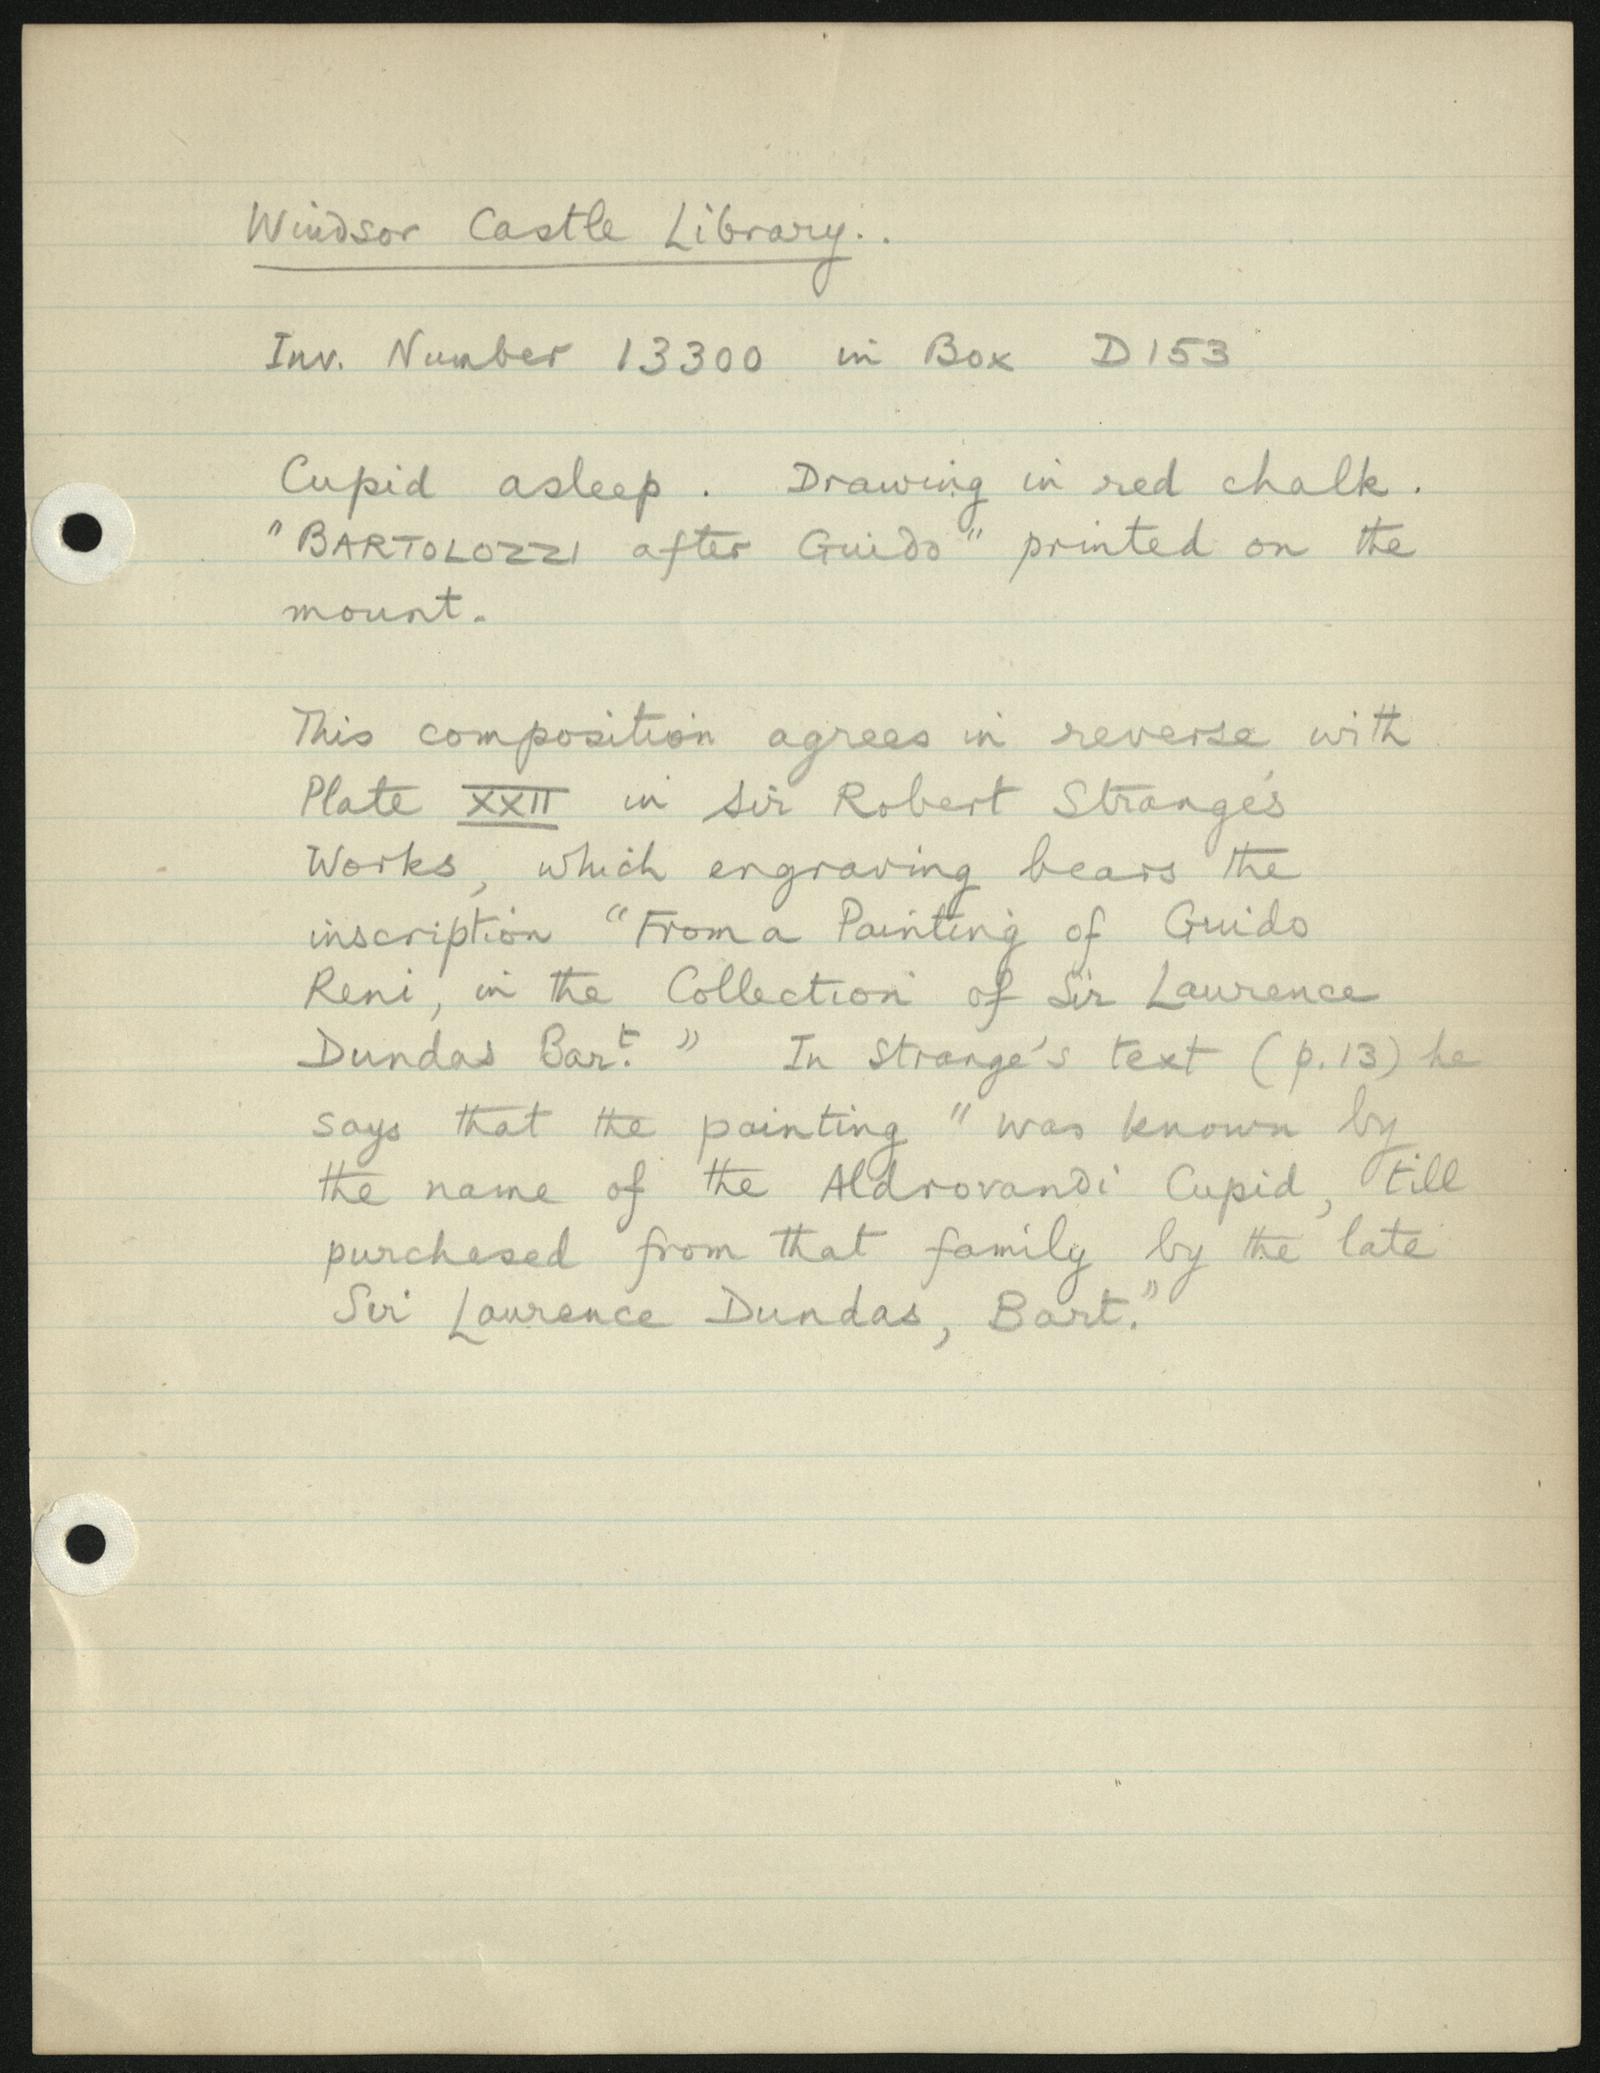 Windsor Castle Library.
Inv. Number 13300 in Box D153
Cupid asleep. Drawing in red chalk.
"BARTOLOZZI after Guido" printed on the
mount.
This composition agrees in reverse with
Plate XXII in Sir Robert Strange's
Works, which engraving bears the
inscription "From a Painting of Guido
Reni, in the Collection of Sir Laurence
Dundas Bart." In Strange's text (p.13) he
says that the painting "was known by
the name of the Aldrovandi Cupid, till
purchased from that family by the late
Sir Laurence Dundas, Bart."